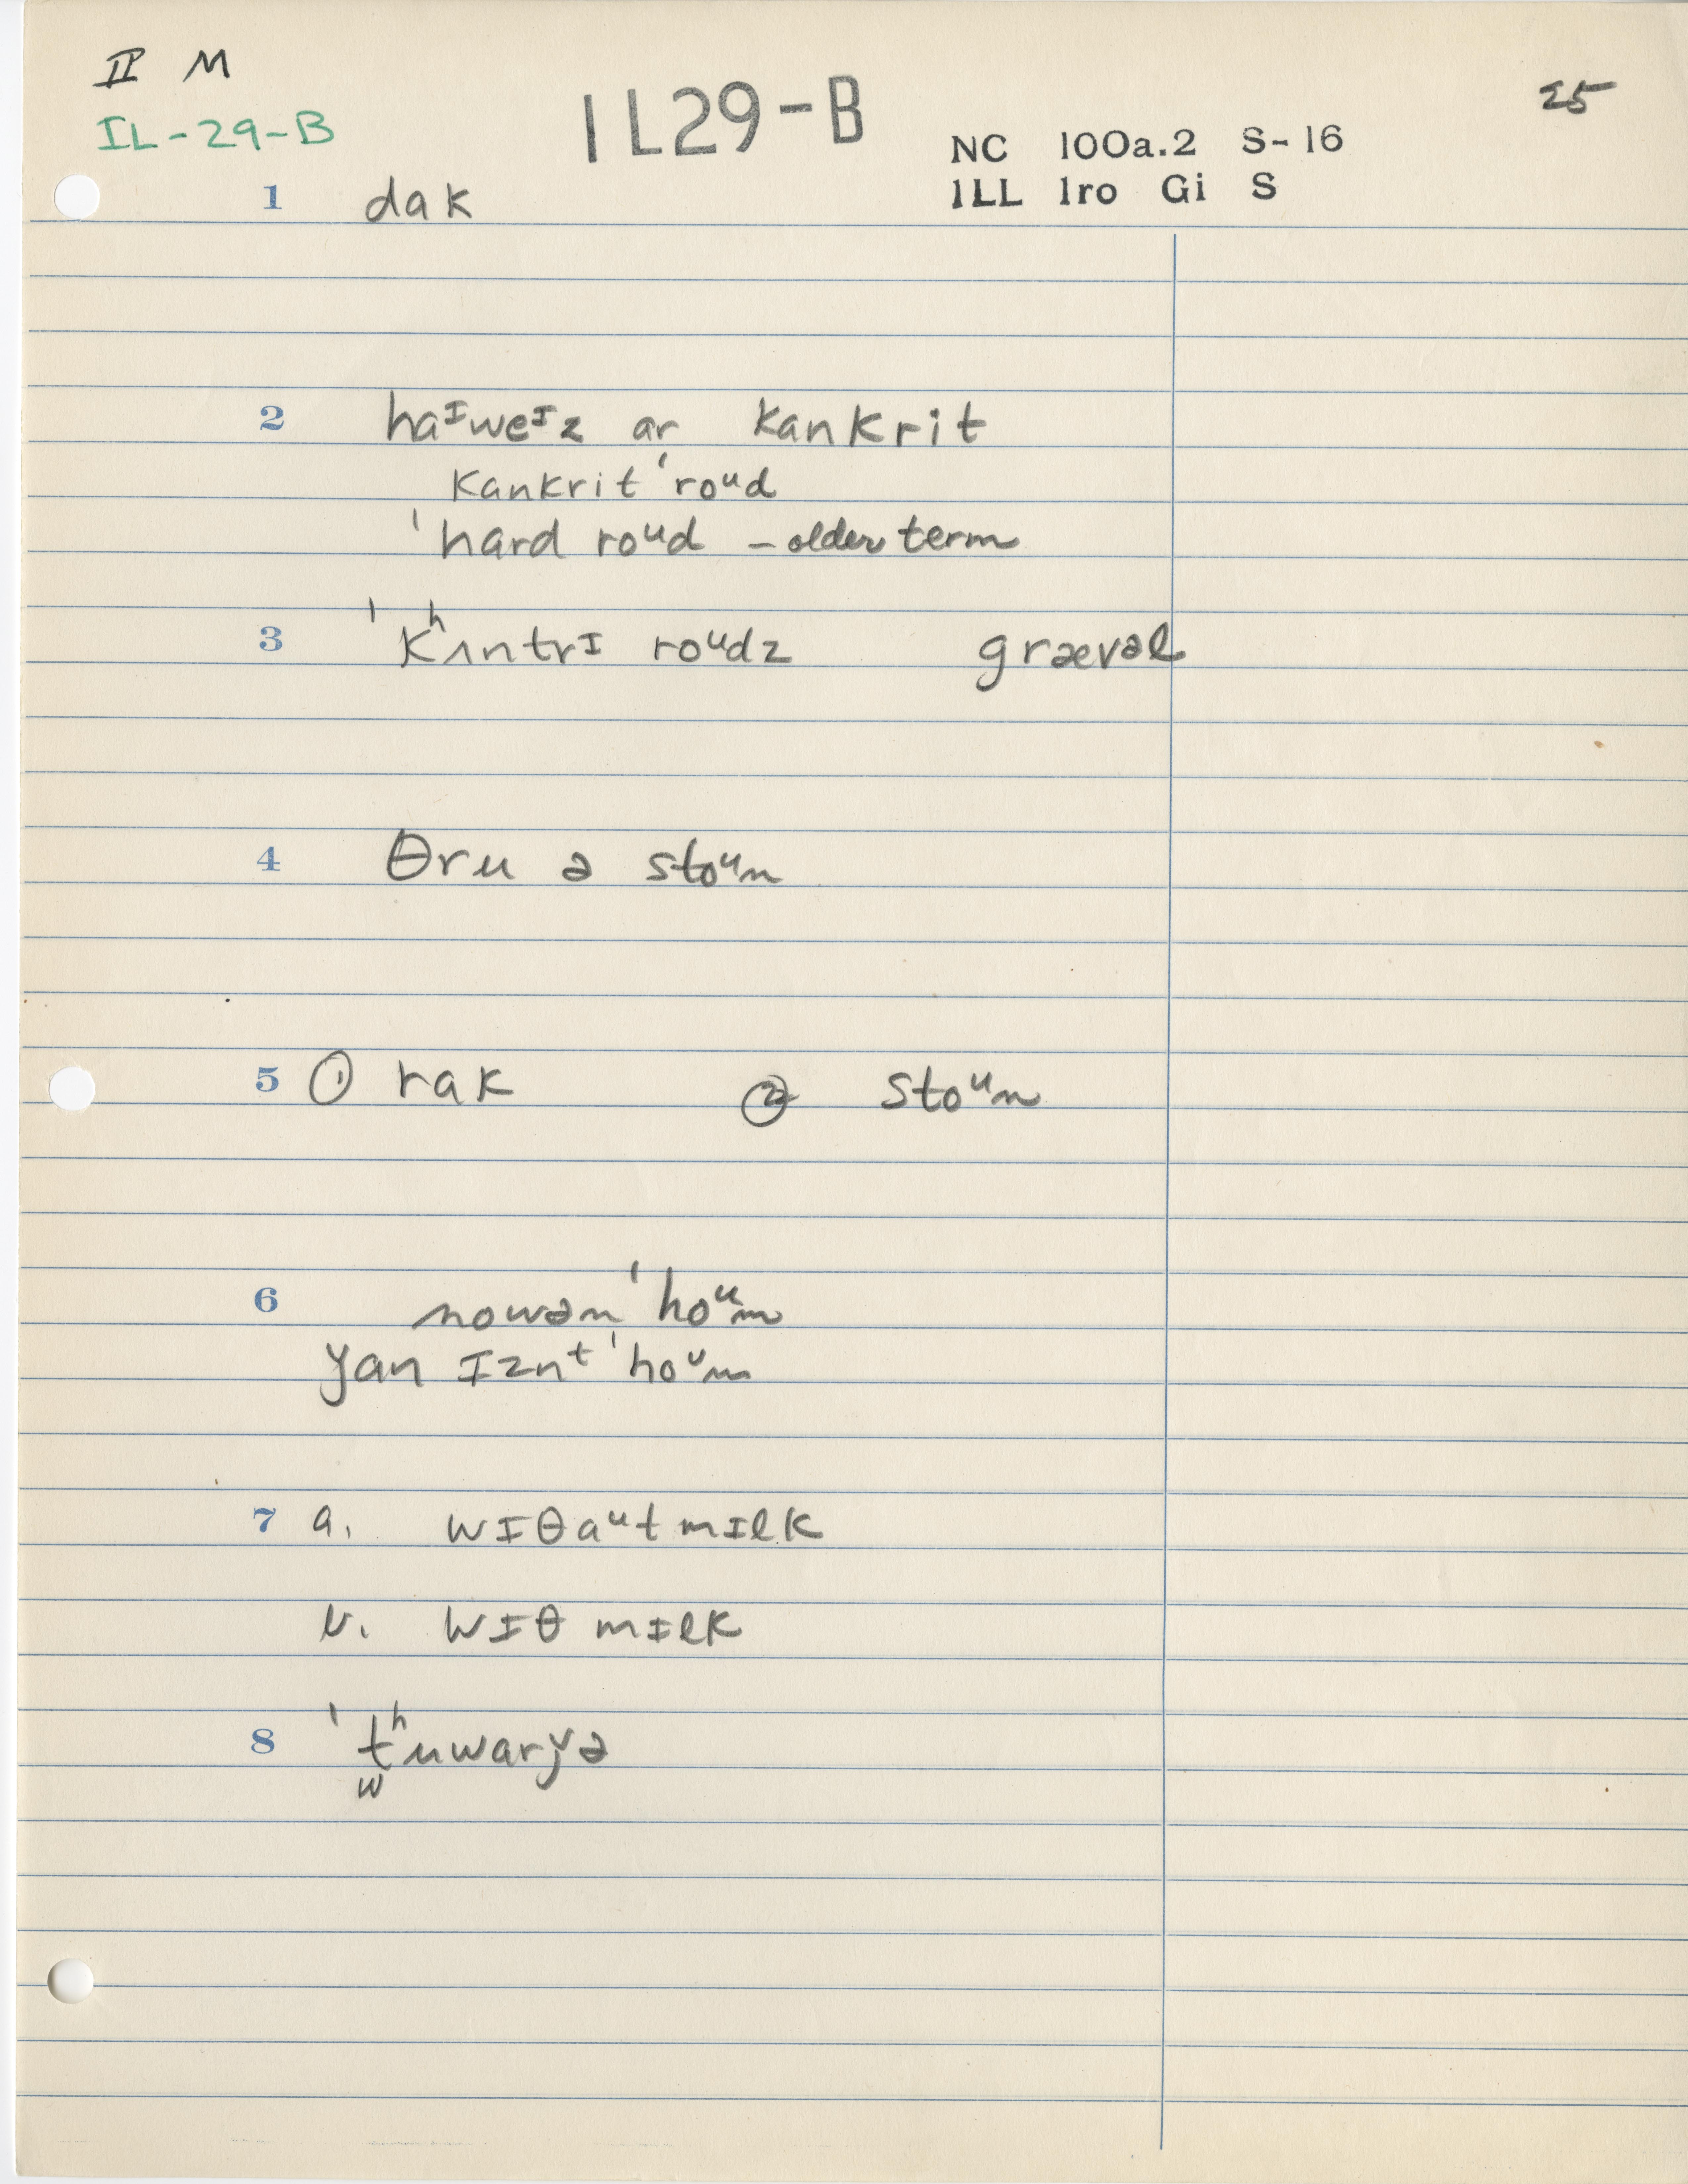 II M
IL-29-B
IL29-B
25
NC 100a.2 S-16
ILL Iro Gi S
1 dak
2 haᴵweᴵz ar kankrit
kankrit ˈroᵘd
ˈhard roᵘd – older term
3 ˈkʰʌntrɪ roᵘdz grævəl
4 θru ə stoᵘn
5 ① rak ② stoᵘn
6 nowən ˈhoᵘm
yan ɪznᵗ ˈhoᵘm
7 a. wɪθaᵘt mɪlk
b. wɪθ mɪlk
8 ˈtʰuwarỵə
w